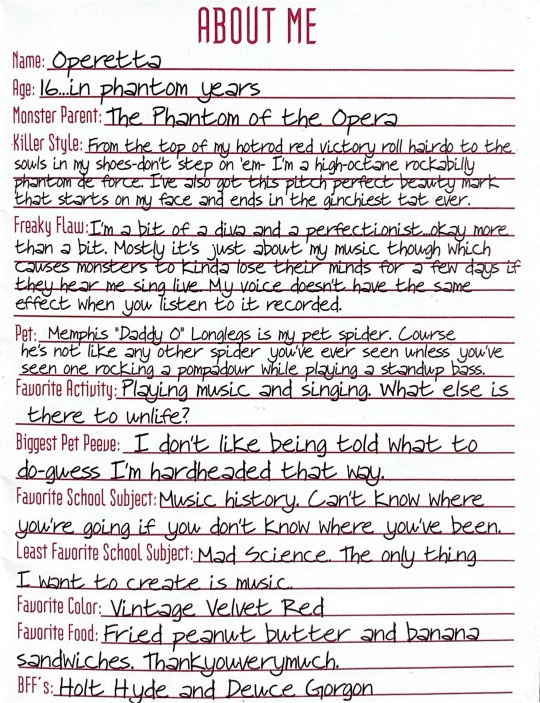 ABOUT ME
Name: Operetta
Age: 16...in phantom years
Monster Parent: The Phantom of the Opera
Killer Style: From the top of my hotrod red victory roll hairdo to the
souls in my shoes-don't step on 'em- I'm a high-octane rockabilly
phantom de force. I've also got this pitch perfect beauty mark
that starts on my face and ends in the ginchiest tat ever.
Freaky Flaw: I'm a bit of a diva and a perfectionist...okay more
than a bit. Mostly it's just about my music though which
causes monsters to kinda lose their minds for a few days if
they hear me sing live. My voice doesn't have the same
effect when you listen to it recorded.
Pet: Memphis "Daddy O" Longlegs is my pet spider. Course
he's not like any other spider you've ever seen unless you've
seen one rocking a pompadour while playing a standup bass.
Favorite Activity: Playing music and singing. What else is
there to unlife?
Biggest Pet Peeve: I don't like being told what to
do-guess I'm hardheaded that way.
Favorite School Subject: Music history. Can't know where
you're going if you don't know where you've been.
Least Favorite School Subject: Mad Science. The only thing
I want to create is music.
Favorite Color: Vintage Velvet Red
Favorite Food: Fried peanut butter and banana
sandwiches. Thankyouverymuch.
BFF's: Holt Hyde and Deuce Gorgon